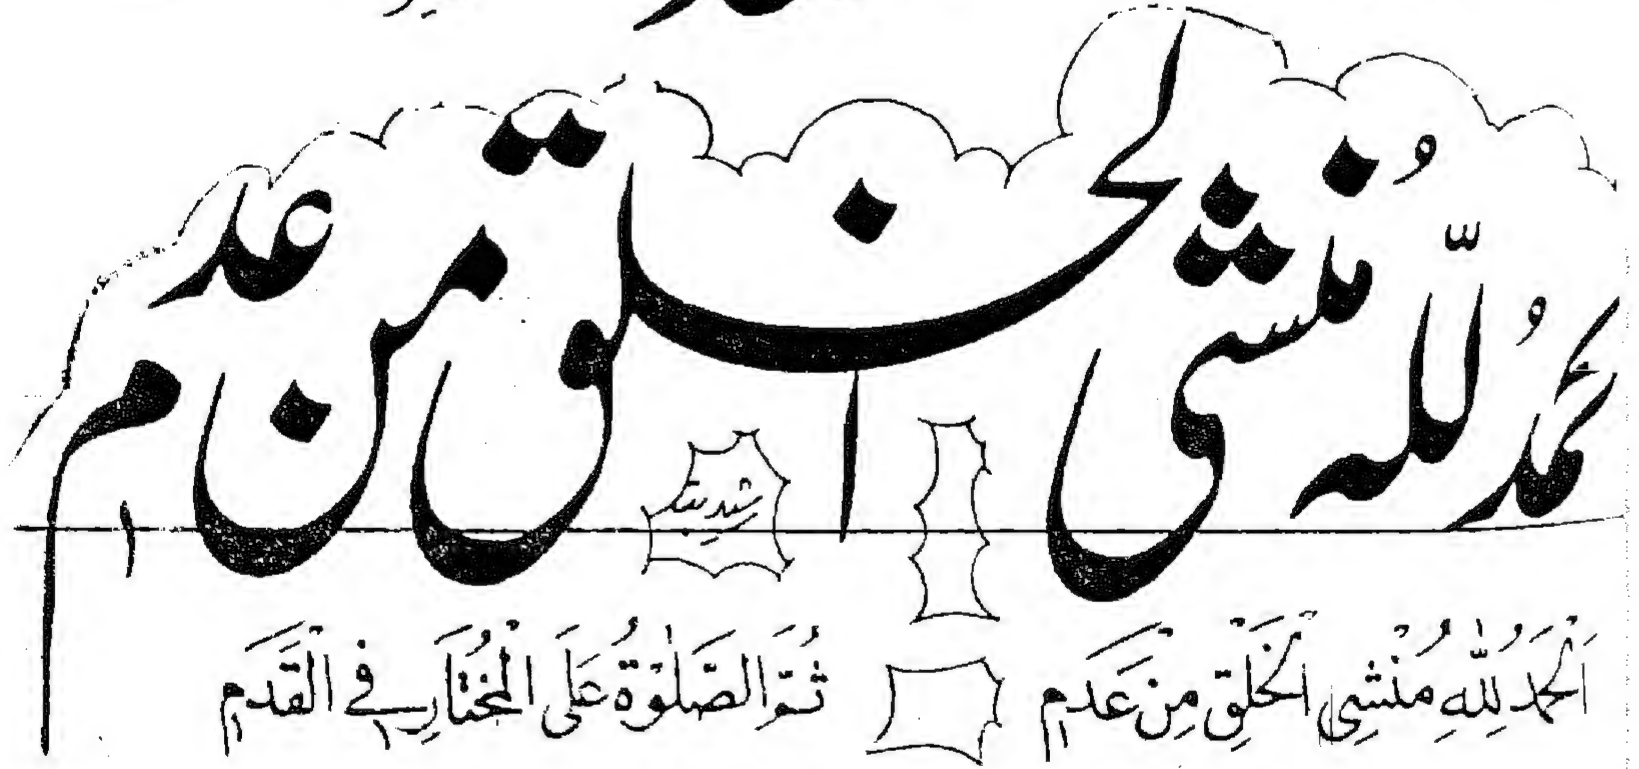 الحمد لله منشی الخلق من عدم
اَلْحَمْدُ لِلّٰهِ مُنْشِي الْخَلْقِ مِنْ عَدَمٍ ثُمَّ الصَّلٰوةُ عَلَى الْمُخْتَارِ فِي الْقَدَمِ